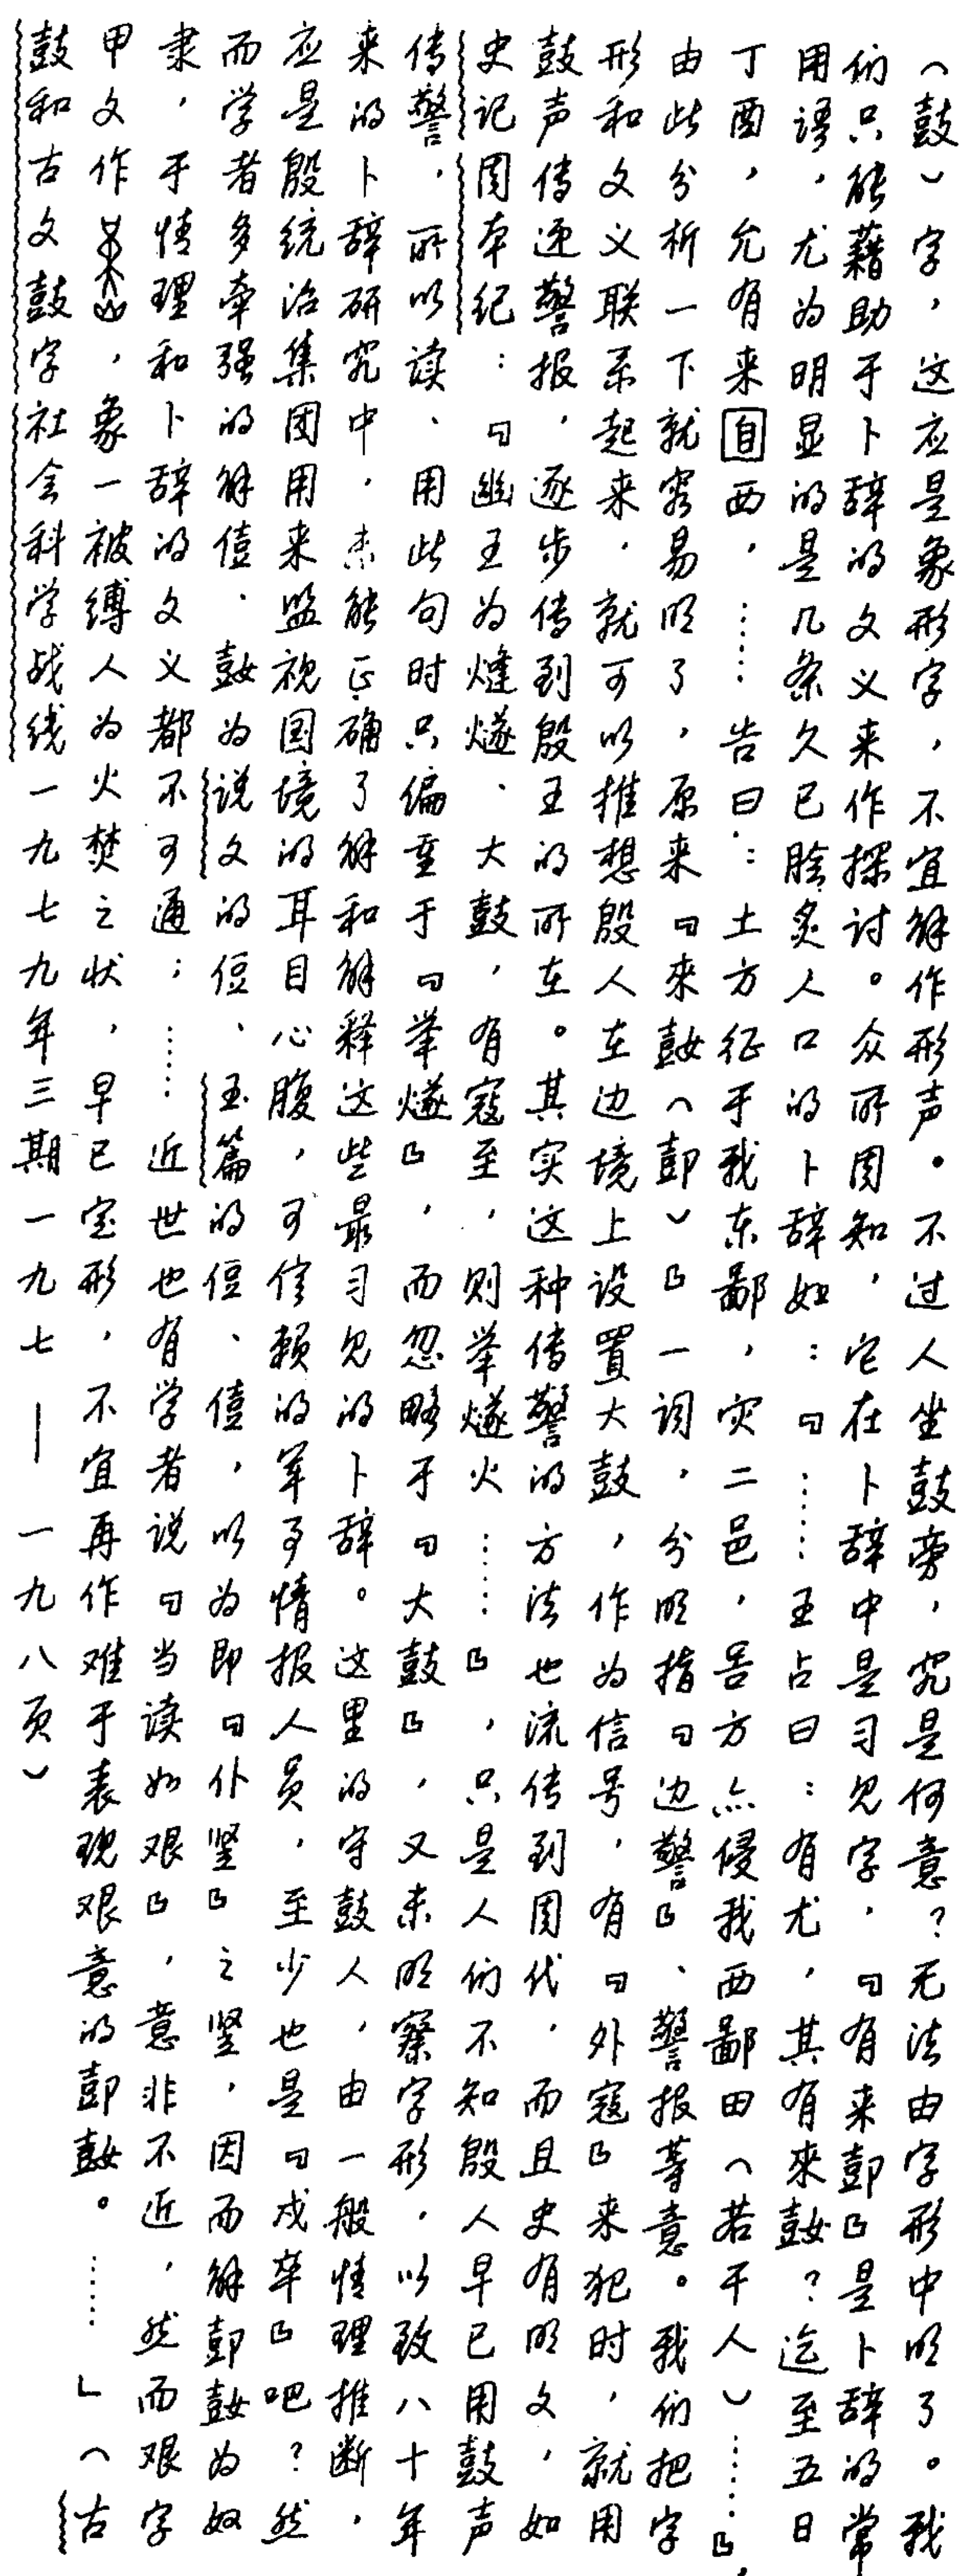 （鼓）字，这应是象形字，不宜解作形声。不过人坐鼓旁，究是何意？无法由字形中明了。我
们只能藉助于卜辞的文义来作探讨。众所周知，它在卜辞中是习见字，「有来𡔷」是卜辞的常
用语，尤为明显的是几条久已脍炙人口的卜辞如：「……王占曰：有尤，其有來嬄？迄至五日
丁酉，允有来㛸自西，……告曰：土方征于我东鄙，灾二邑，𢀛方亦侵我西鄙田（若干人）……」，
由此分析一下就容易明了，原来「來㛸（𡔷）」一词，分明指「边警」、警报等意。我们把字
形和文义联系起来，就可以推想殷人在边境上设置大鼓，作为信号，有「外寇」来犯时，就用
鼓声传递警报，逐步传到殷王的所在。其实这种传警的方法也流传到周代，而且史有明文，如
史记周本纪：「幽王为㷭燧、大鼓，有寇至，则举燧火……」，只是人们不知殷人早已用鼓声
传警，所以读、用此句时只偏重于「举燧」，而忽略于「大鼓」，又未明察字形，以致八十年
来的卜辞研究中，未能正确了解和解释这些最习见的卜辞。这里的守鼓人，由一般情理推断，
应是殷统治集团用来监视国境的耳目心腹，可信赖的军事情报人员，至少也是「戍卒」吧？然
而学者多牵强的解僖、㛸为说文的侸、玉篇的侸、僖，以为即「仆竖」之竖，因而解𡔷㛸为奴
隶，于情理和卜辞的文义都不可通；……近世也有学者说「当读如艰」，意非不近，然而艰字
甲文作，象一被缚人为火焚之状，早已定形，不宜再作难于表现艰意的𡔷㛸。……」（古
鼓和古文鼓字社会科学战线一九七九年三期一九七——一九八页）